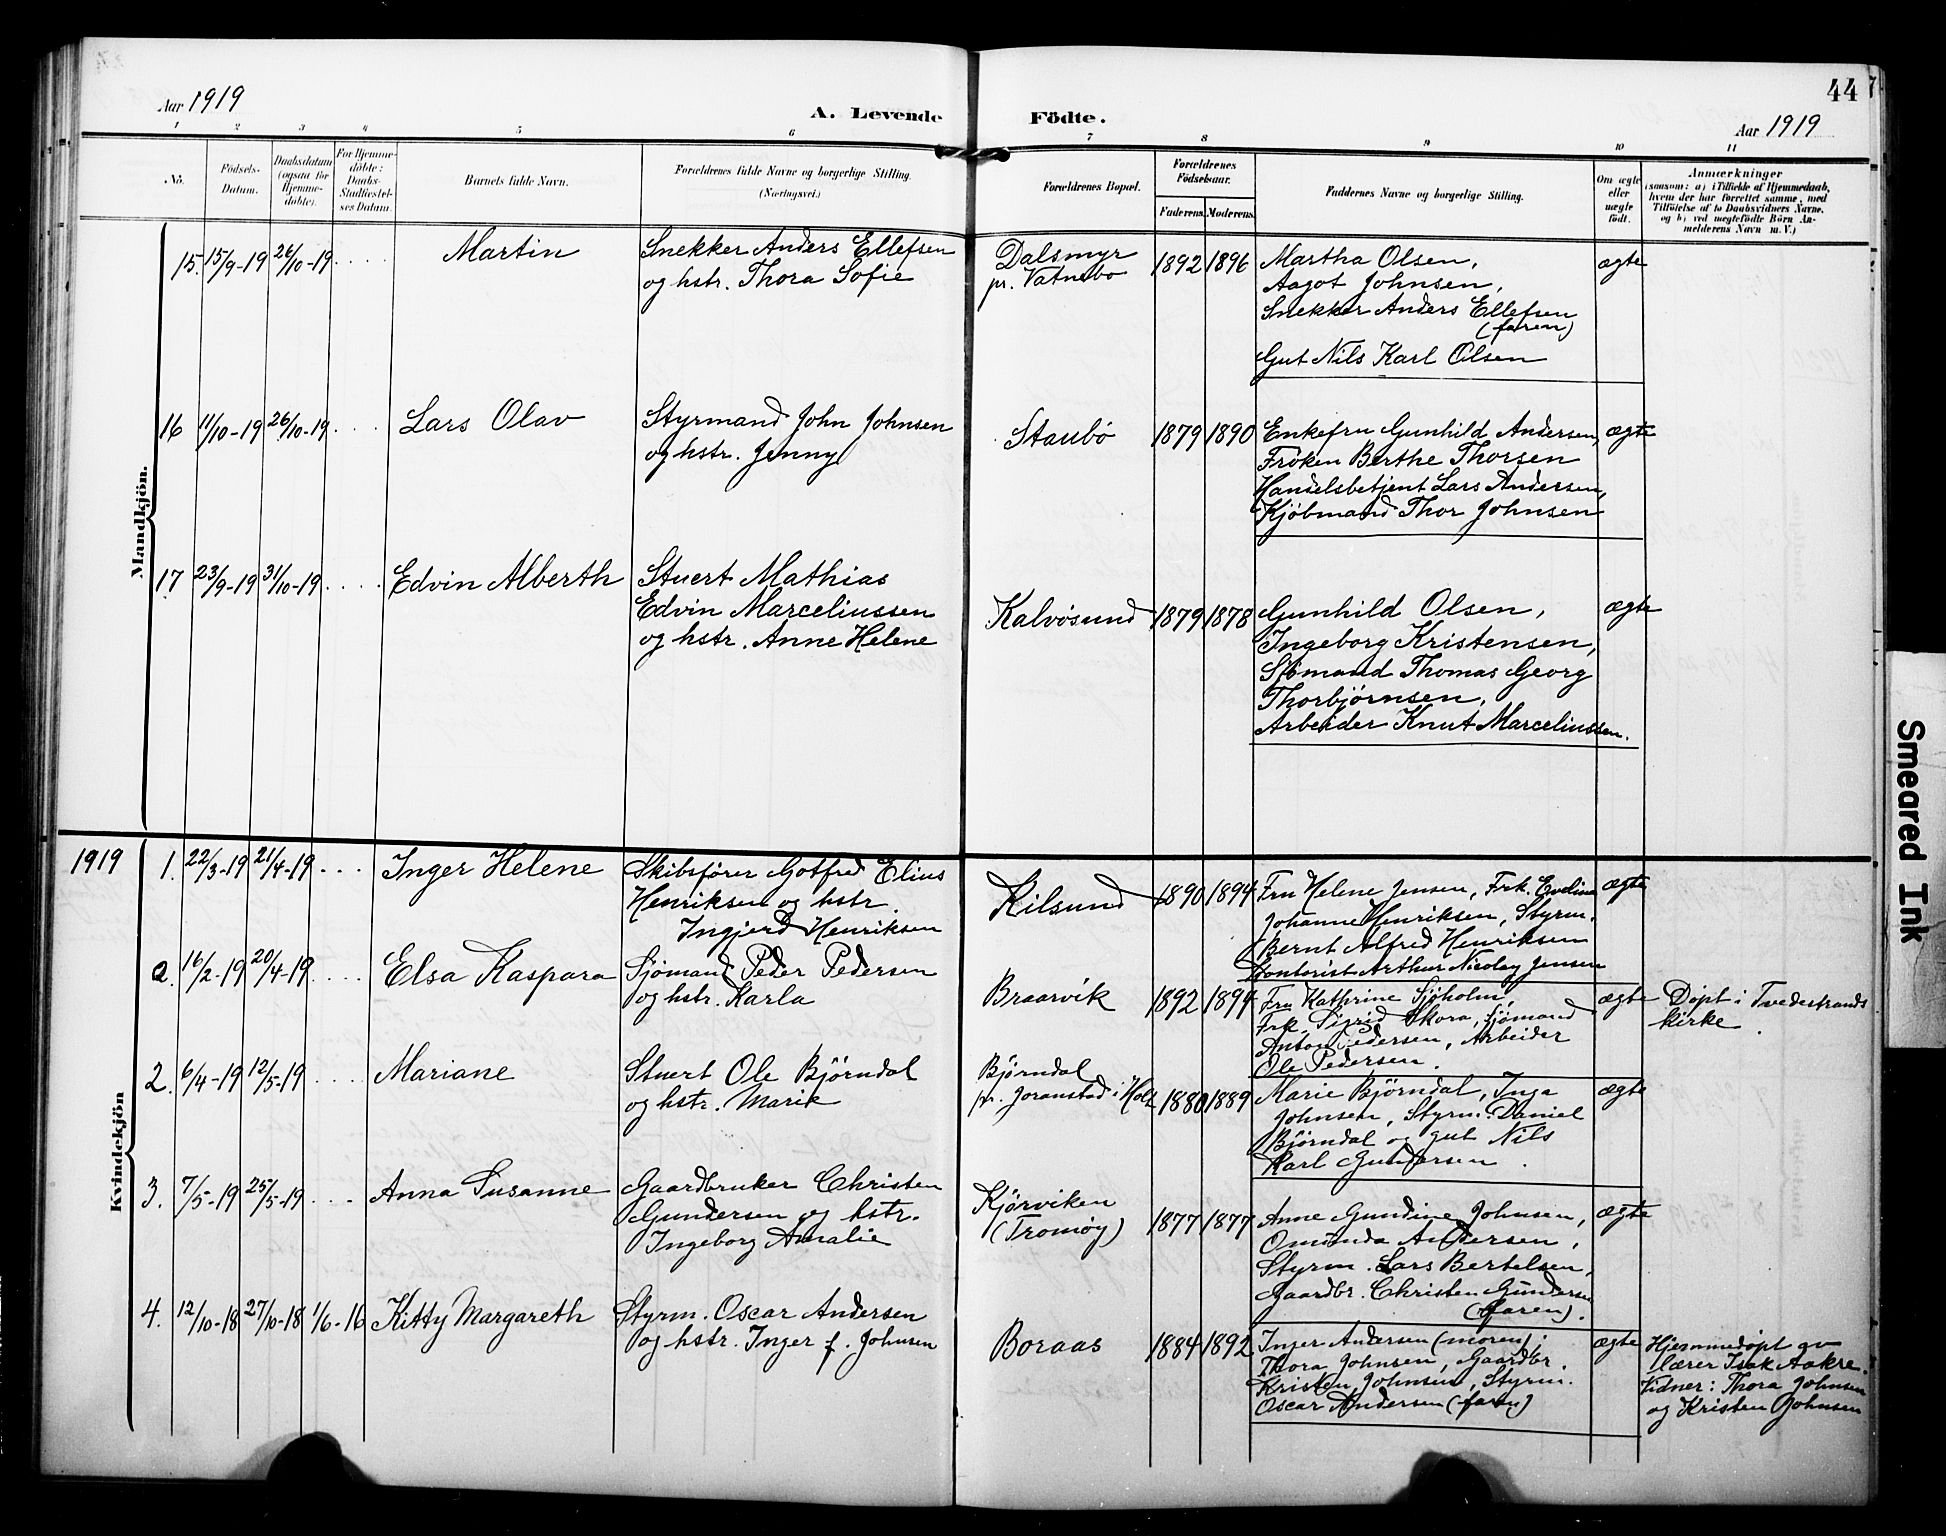 44
Aar 1919
A. Levende
Födte.
Aar 1919
1 2 3 4 5 6 7 8 9 10 11
No.
Födsels-Datum.
Daabsdatum (ogsaa for Hjemme-döbte).
For Hjemme-döbte: Daabs-Stadfæstel-ses Datum.
Barnets fulde Navn.
Forældrenes fulde Navne og borgerlige Stilling. (Næringsvei.)
Forældrenes Bopæl.
Forældrenes Födselsaar.
Faderens. Moderens.
Faddernes Navne og borgerlige Stilling.
Om ægte eller uægte födt.
Anmærkninger
(saasom: a) i Tilfælde af Hjemmedaab,
hvem der har forrettet samme, med
Tilföielse af to Daabsvidners Navne,
og b) ved uægtefödte Börn An-
melderens Navn m. V.)
Mandkjön.
15. 15/9-19 26/10-19 .... Martin
Snekker Anders Ellefsen
og hstr. Thora Sofie
Dalsmyr
pr. Vatnebo
1892 1896
Martha Olsen,
Aagot Johnsen,
Snekker Anders Ellefsen
(faren)
Gut Nils Karl Olsen
ægte
16 11/10-19 26/10-19 .... Lars Olav
Styrmand John Johnsen
og hstr. Jenny
Staubø
1879 1890
Enkefru Gunhild Andersen,
Frøken Berthe Thorsen
Handelsbetjent Lars Andersen,
Kjøbmand Thor Johnsen
ægte
17 23/9-19 31/10-19 .... Edvin Alberth
Stuert Mathias
Edvin Marceliussen
og hstr. Anne Helene
Kalvøsund
1879 1878
Gunhild Olsen,
Ingeborg Kristensen,
Sjömand Thomas Georg
Thorbjørnsen,
Arbeider Knut Marceliussen.
ægte
1919
Kvindekjön
1. 22/3-19 21/4-19 ... Inger Helene
Skibsfører Gotfred Elius
Henriksen og hstr.
Ingjerd Henriksen
Kilsund
1890 1894
Fru Helene Jensen, Frk. Evelina
Johanne Henriksen, Styrm.
Bernt Alfred Henriksen
Kontorist Arthur Nicolay Jensen
ægte
a. 16/2-19 20/4-19 .... Elsa Kaspara
Sjömand Peder Pedersen
og hstr. Karla
Braarvik
1892 1894
Fru Kathrine Sjøholm,
Frk. Sigrid Skora, Sjømand
Anton Pedersen, Arbeider
Ole Pedersen.
ægte
Døpt i Tvedestrands
kirke.
2. 6/4-19 12/5-19 .... Mariane
Stuert Ole Bjørndal
og hstr. Marie
Bjørndal
pr. Joranstad i Holt
1880 1889
Marie Bjørndal, Inga
Johnsen, Styrm. Daniel
Bjørndal og gut Nils
Karl Gundersen.
ægte
3. 7/5-19 25/5-19 ... Anna Susanne
Gaardbruker Christen
Gundersen og hstr.
Ingeborg Amalie
Kjørviken
(Tromøy)
1877 1877
Anne Gundine Johnsen,
Omunda Andersen,
Styrm. Lars Bertelsen,
Gaardbr. Christen Gundersen
(faren).
ægte
4. 12/10-18 27/10-18 1/6-16 Kitty Margareth
Styrm. Oscar Andersen
og hstr. Inger f. Johnsen
Boraas
1884 1892
Inger Andersen (moren),
Thora Johnsen, Gaardbr.
Kristen Johnsen, Styrm.
Oscar Andersen (faren)
ægte
Hjemmedøpt av
lærer Isak Aakre.
Vidner: Thora Johnsen
og Kristen Johnsen
Smeared Ink